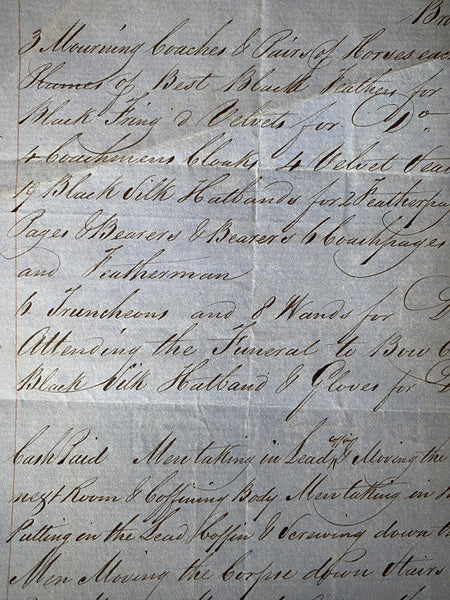 Bro
3 Mourning Coaches & Pairs of Horses eac
Plumes of Best Black Feathers for
Black Fring'd Velvets for Do
4 Coachmens Cloaks 4 Velvet Sea
Black Silk Hatbands for 2 Featherpag
Pages 8 Bearers & Bearers 6 Coachpages
and Featherman
6 Truncheons and 8 Wands for D
Attending the Funeral to Bow C
Black Silk Hatband & Gloves for D
Cash Paid Men taking in Lead Moving the
next Room & Coffining Body Men taking in th
Putting on the Lead Coffin & Screwing down th
Men Moving the Corpse down Stairs